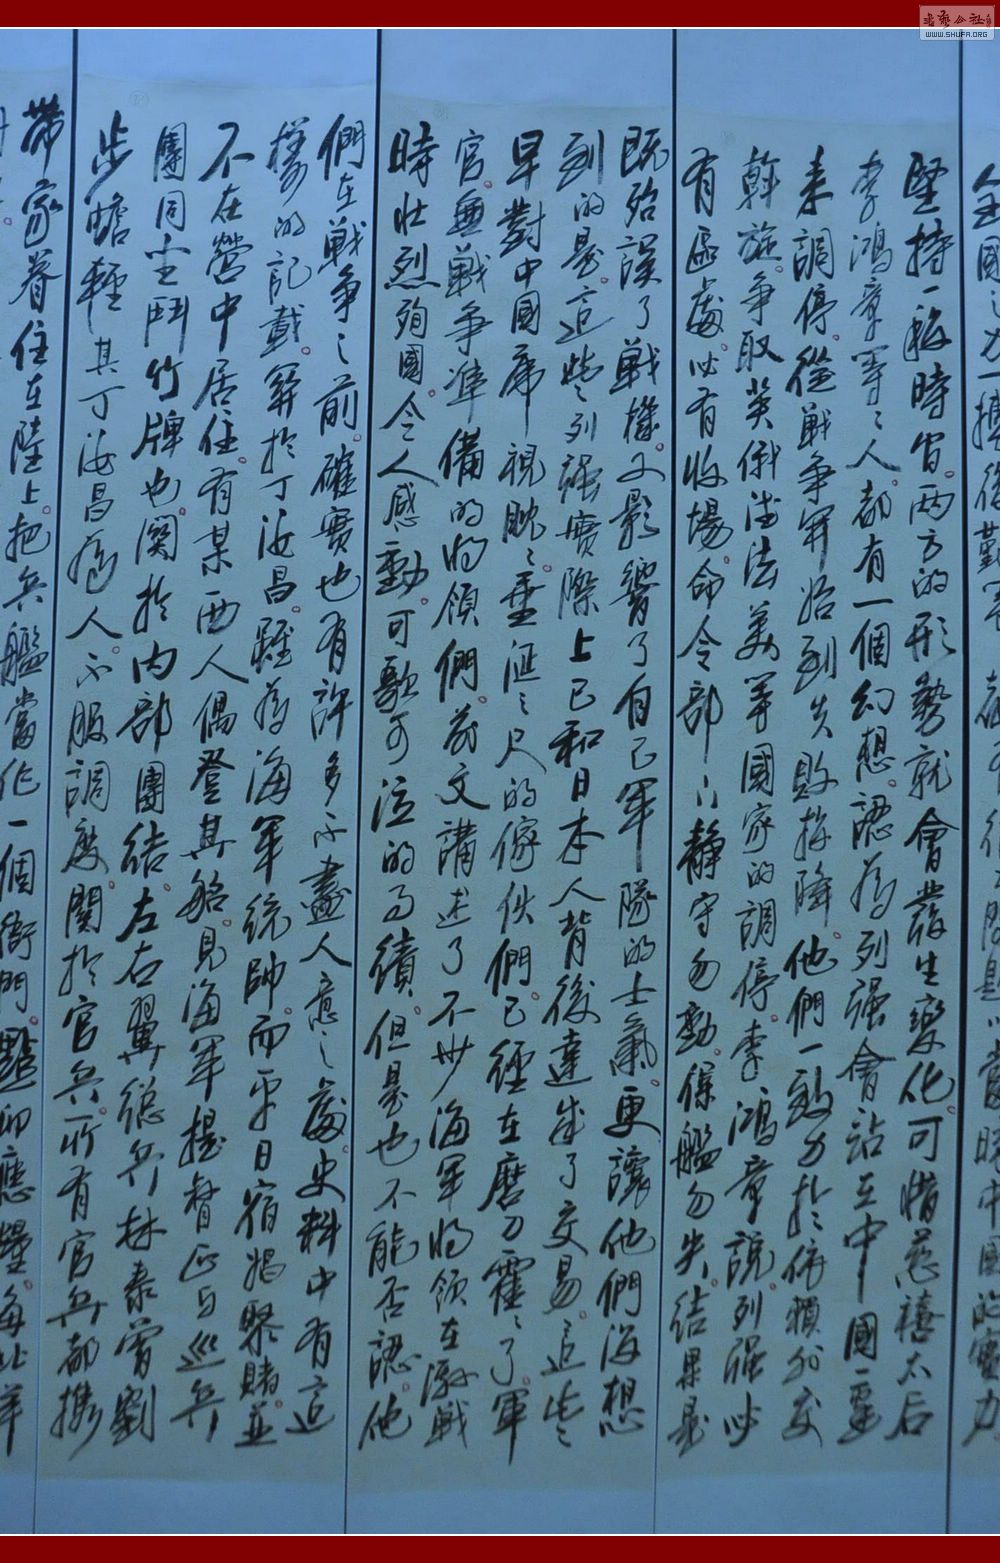 全國之力一搏
堅持一段時間兩方的形勢就會發生變化可惜慈禧太后
李鴻章等之人都有一個幻想認為列强會站在中國一邊
來調停從戰争開始到失敗投降他們一致力於依賴外交
斡旋争取英俄德法美等國家的調停李鴻章說列强必
有區處必有收場命令部下静守勿動保艦勿失結果是
既貽誤了戰機又影響了自己軍隊的士氣更讓他們没想
到的是這些列强實際上已和日本人背後達成了交易這些
早對中國虎視眈々垂涎之尺的傢伙們已經在磨刀霍々了軍
官無戰争準備的將領們前文講述了不少海軍將領在海戰
時壯烈殉國令人感動可歌可泣的事績但是也不能否認他
們在戰争之前確實也有許多不盡人意之處史料中有這
樣的記載關於丁汝昌雖為海軍統帥而平日宿娼聚賭並
不在營中居住有某西人偶登其船見海軍提督正與巡兵
團同坐鬥竹牌也關於内部團結左右翼總兵林泰曾劉
步蟾輕其丁汝昌為人不服調度關於官兵所有官兵都携
帶家眷住在陸上把兵艦當作一個衙門點卯應糧每北洋
書藝公社
WWW.SHUFA.ORG